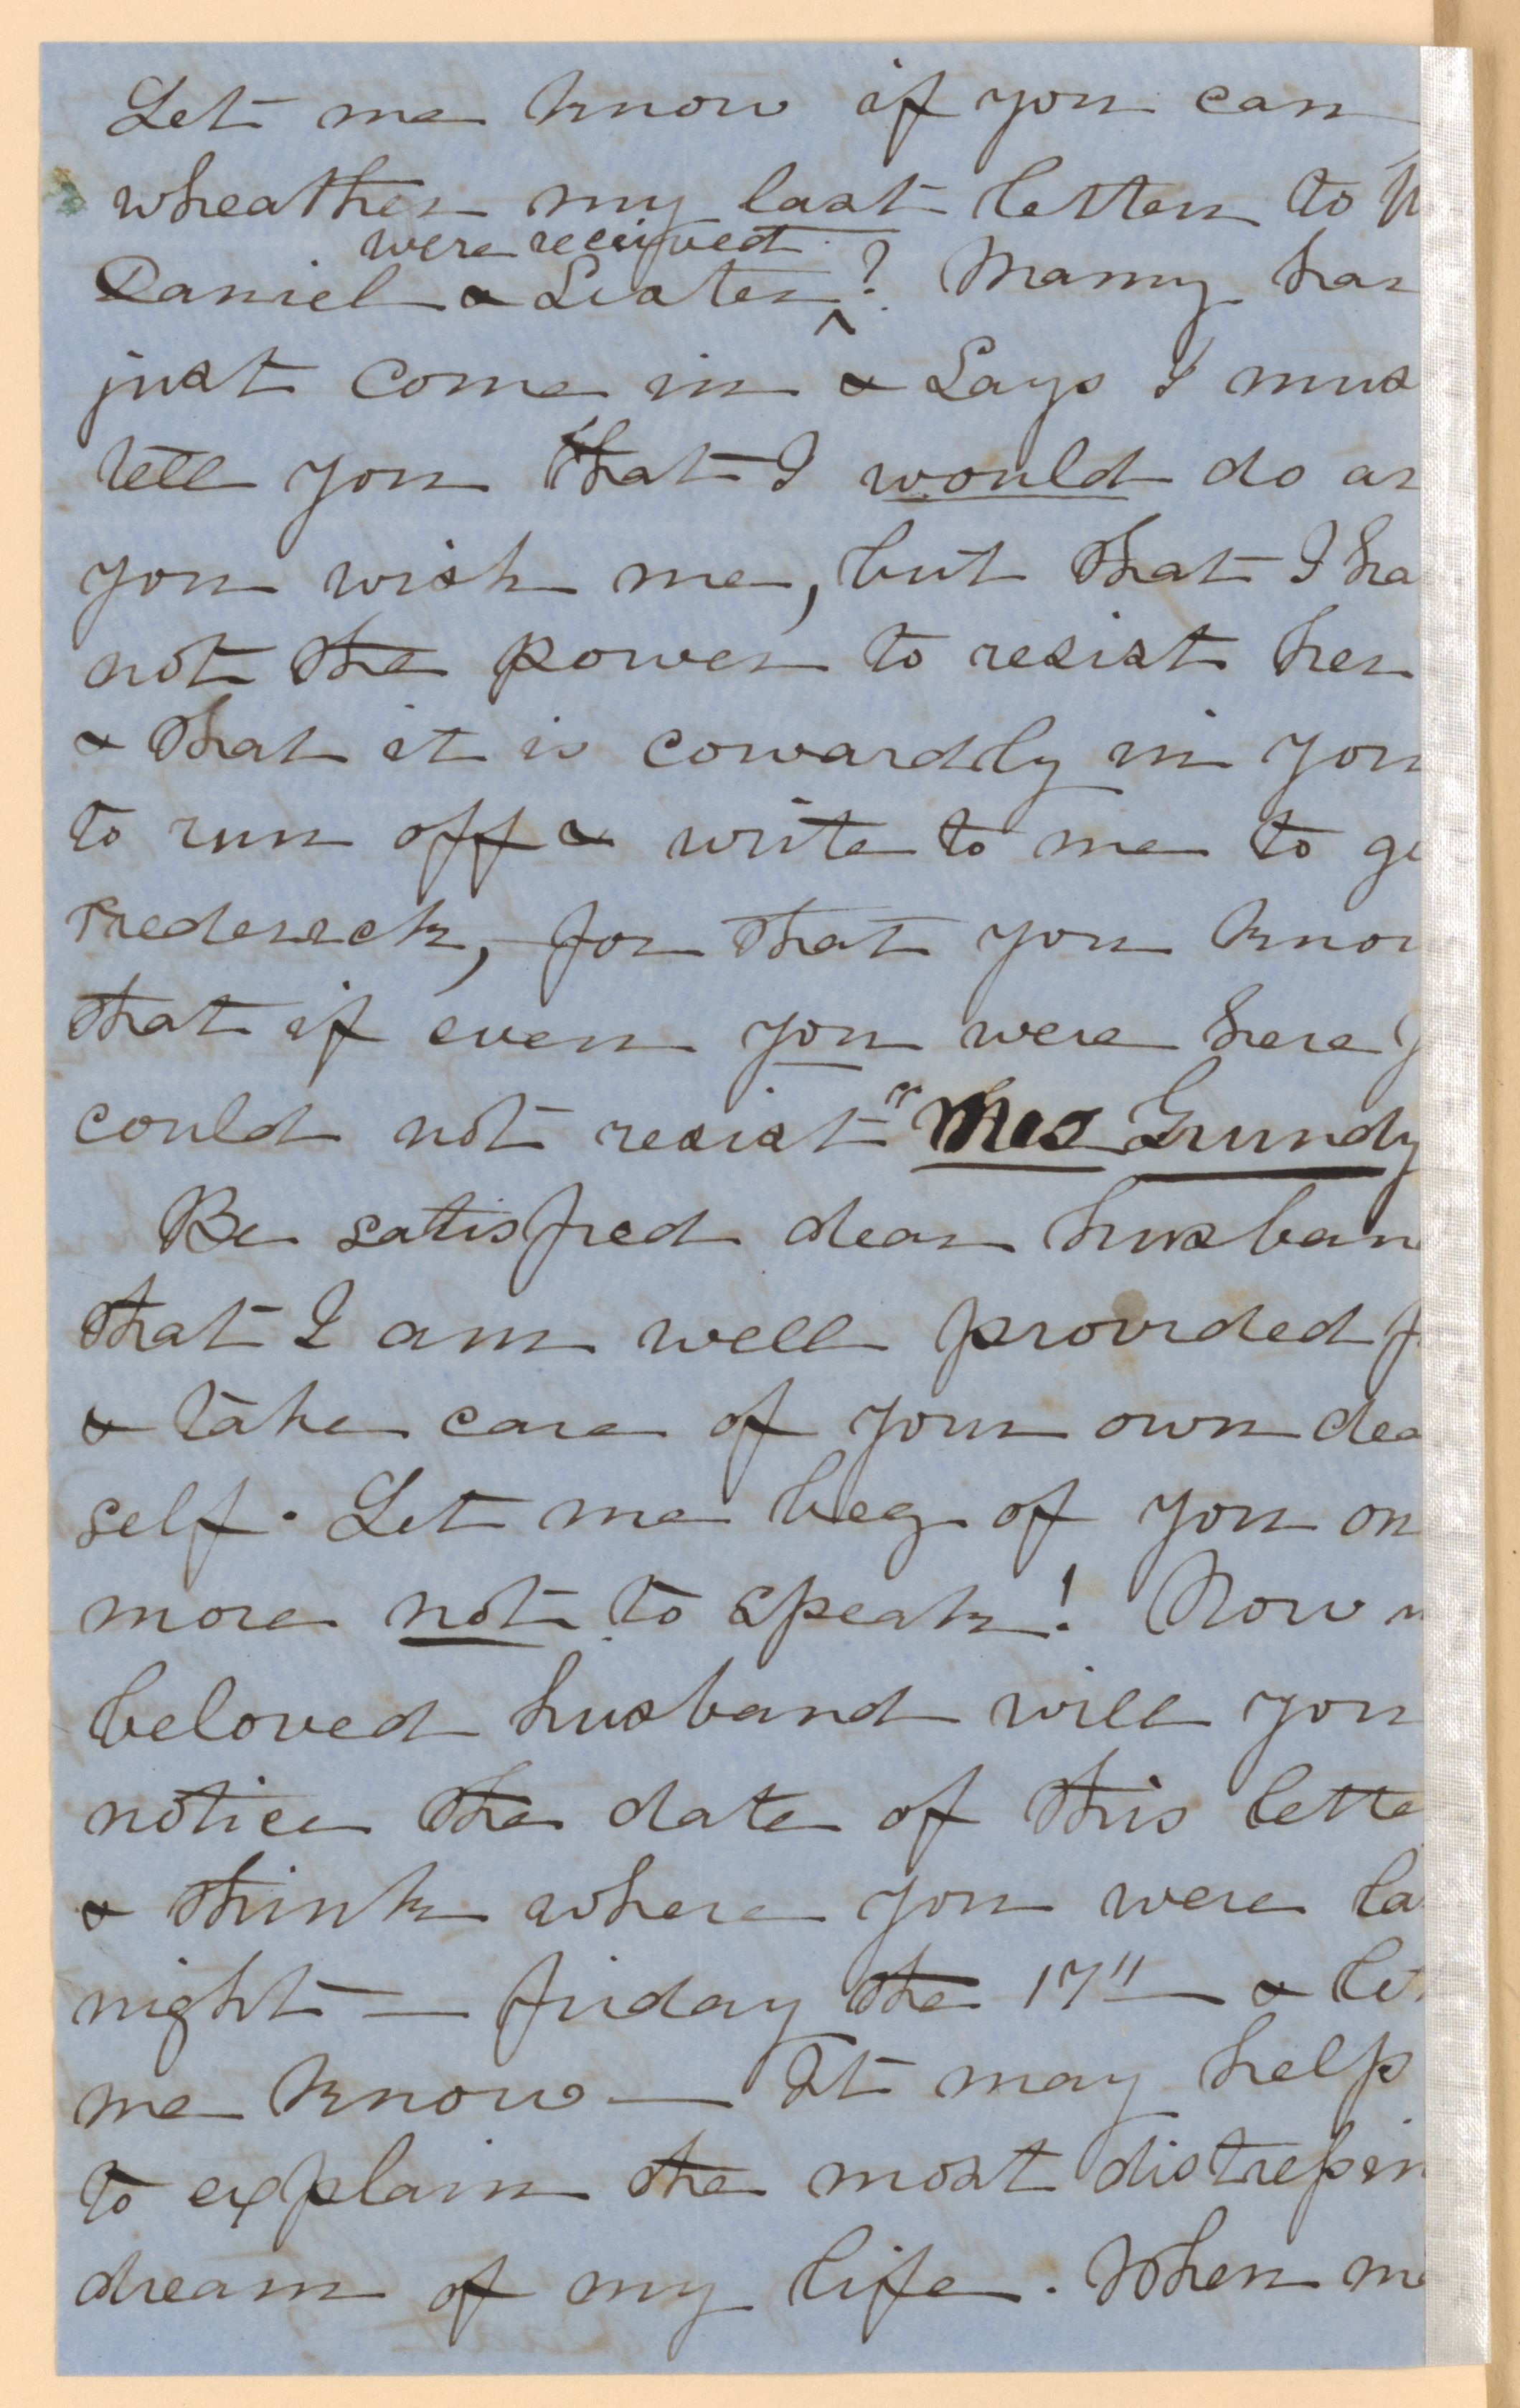 Let me know if you can
wheather my last letters to
were received
Daniel & Sister ^ ? Mamy has
just come in & Says I mus
tell you that I would do as
you wish me, but that I ha
not the power to resist her
& that it is cowardly in you
to run off & write to me to ge
Frederick, for that you know
that if even you were here y
could not resist "Mrs Grundy
Be satisfied dear husban
that I am well provided f
& take care of your own dea
self. Let me beg of you on
more not to speak! Now m
beloved husband will you
notice the date of this lette
& think where you were la
night — friday the 17" — & let
me know — It may help
to explain the most distressin
dream of my life. When m